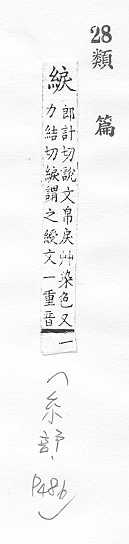 28類篇
綟
郎計切說文帛戾艸染色又一
力結切綟謂之綬文一重音
(糸部，
P48b)